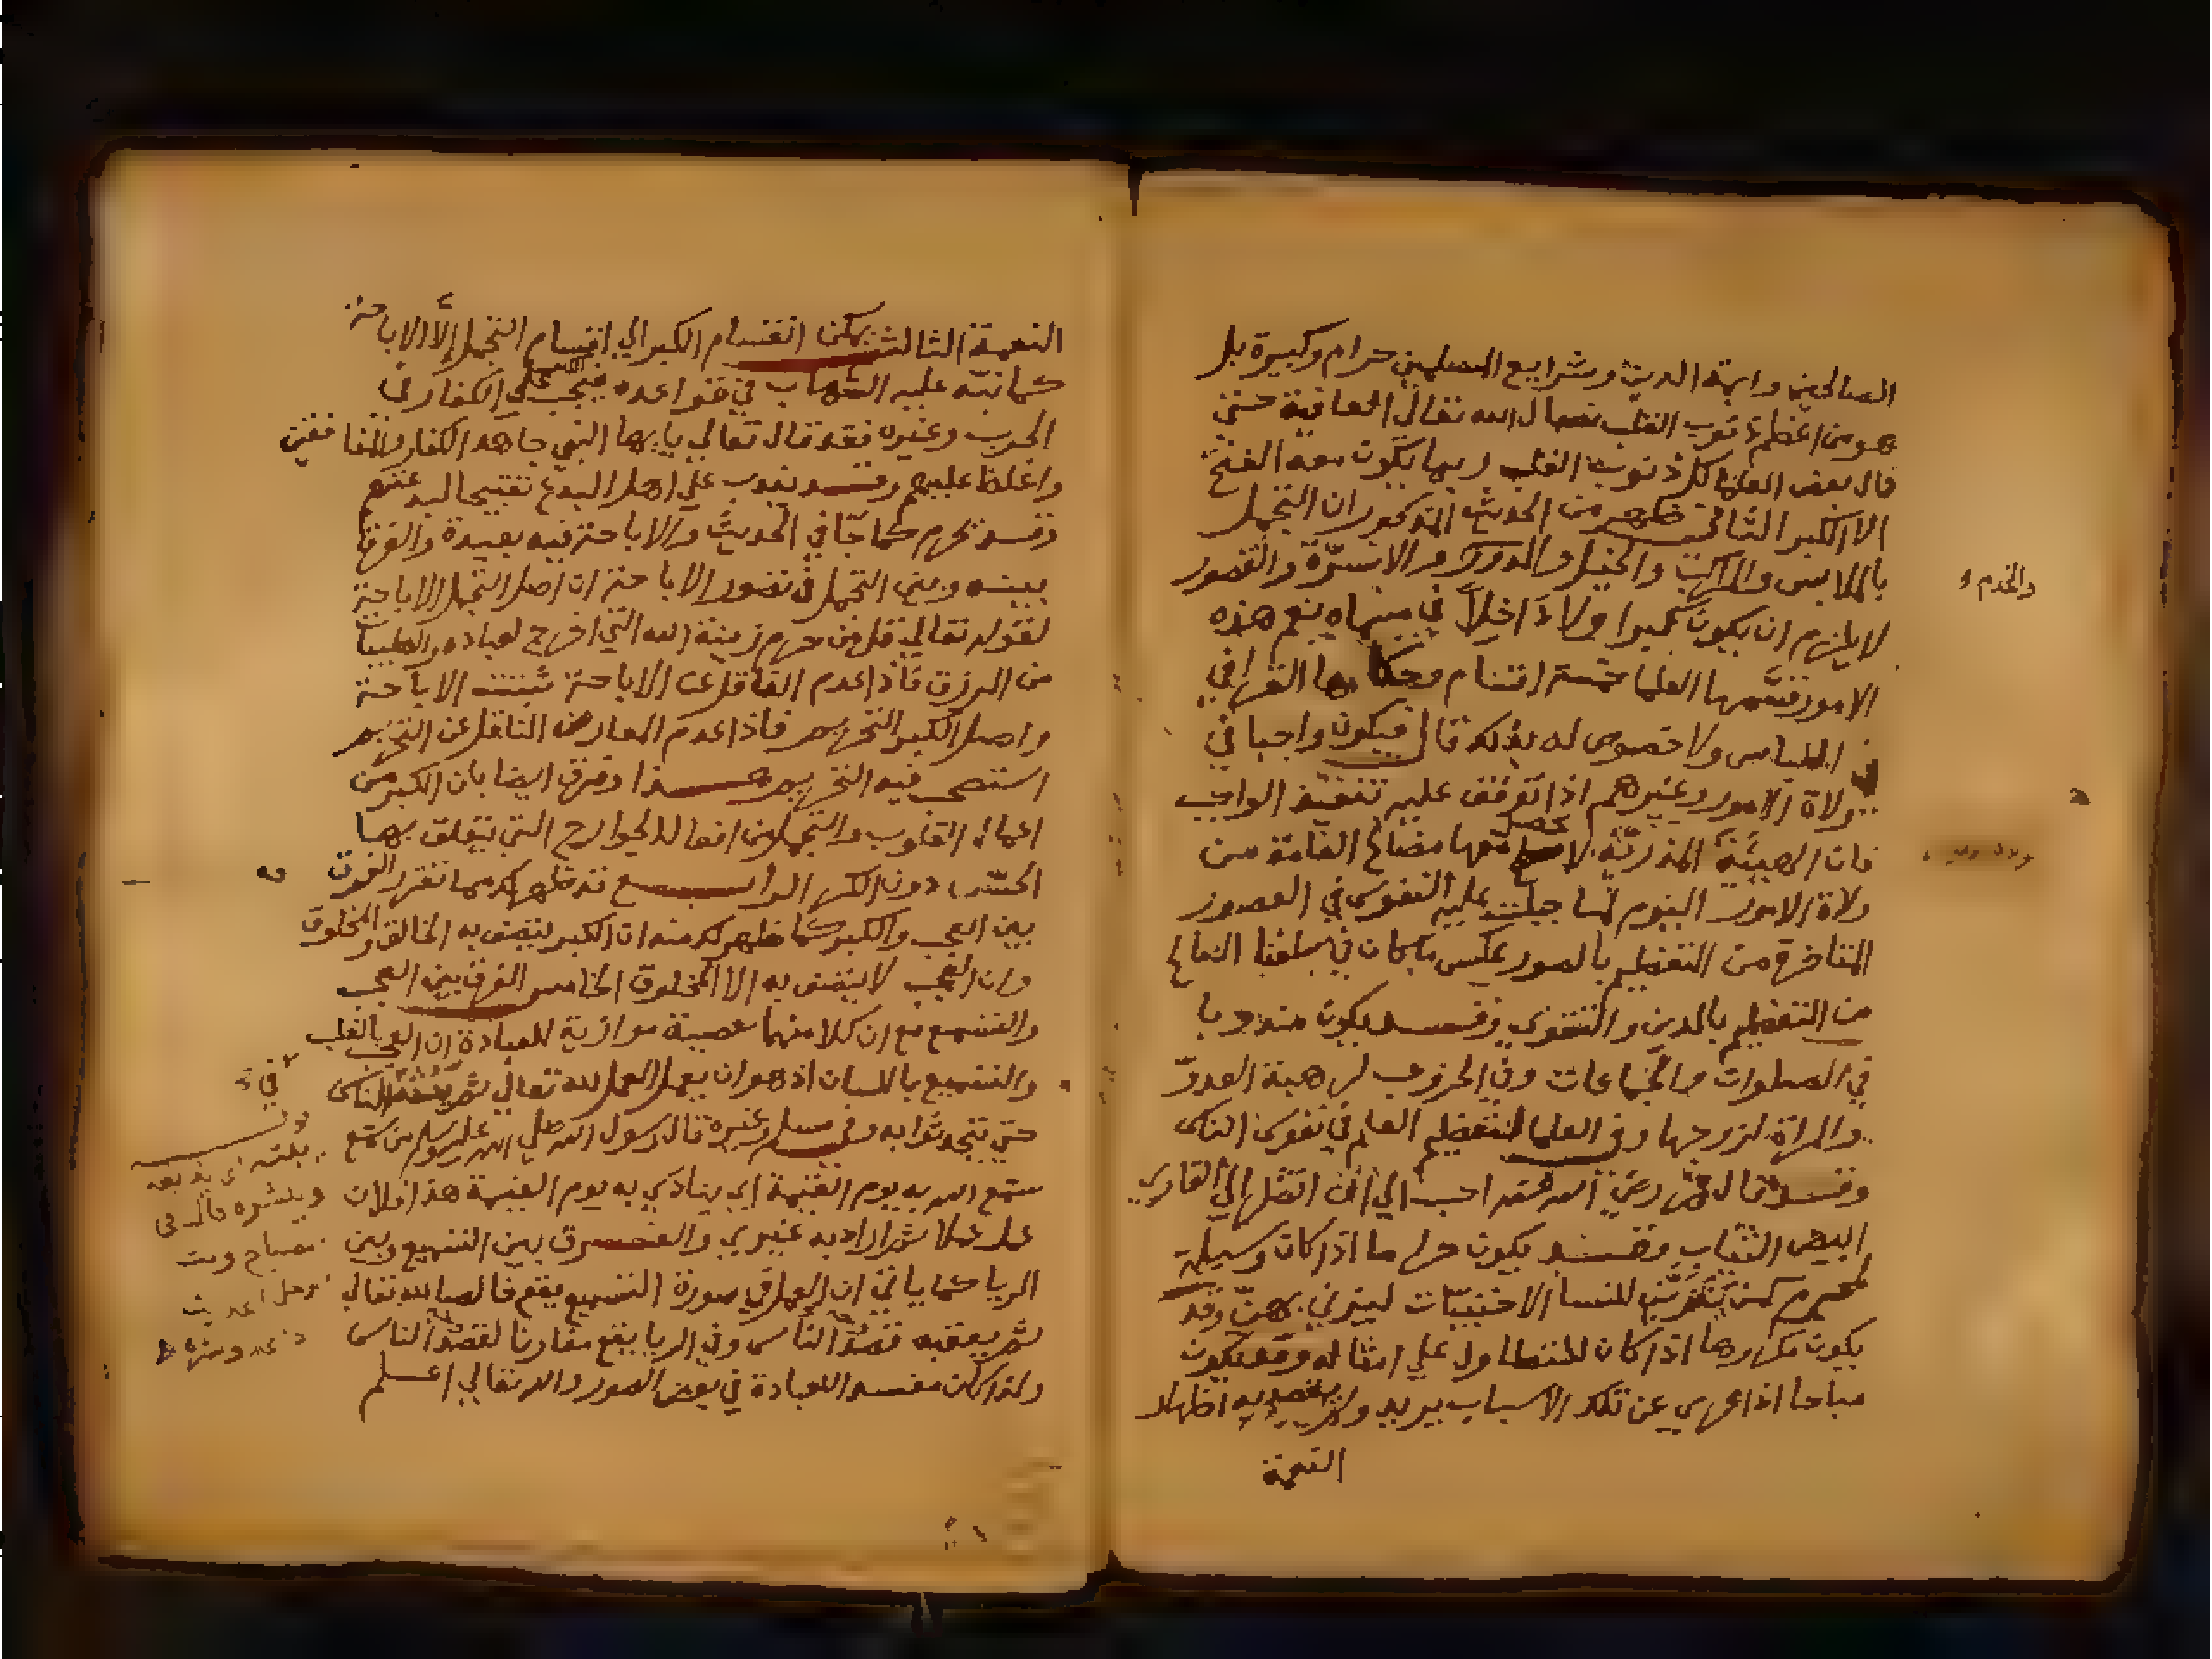 الصالحين وايمة الدين وشرايع المسلمين حرام وكبيرة بل
هو من اعظم ذنوب القلب نسال الله تعالى العافية حتى
قال بعض العلما كل ذنوب القلب ربما يكون معه الفتح
الا الكبر الثاني ظهر من الحديث المذكور ان التجمل
بالملابس والمراكب والخيل والدور والاسرة والقصور
والخدم و
لا يلزم ان يكون كبرا ولا داخلا في مسماه نعم هذه
الامور قسمها العلما خمسة اقسام وحكا بها القرافي
في اللباس ولا خصوص له بذلك قال فيكون واجبا في
ولاة الامور وغيرهم اذا توقف عليه تنفيذ الواجب
فان الهيئة المزرية لا يحصل معها مصالح العامة من
ولاة الامور اليوم لما جبلت عليه النفوس في العصور
المتاخرة من التعظيم بالصور عكس ما كان في سلفنا الصالح
من التعظيم بالدين والتقوى وقد يكون مندوبا
في الصلوات والجماعات وفي الحروب لرهبة العدو
والمراة لزوجها وفي العلما لتعظيم العلم في نفوس الناس
وقد قال عمر رضي الله عنه احب الي ان انظر الي القاري
ابيض الثياب وقد يكون حراما اذا كان وسيلة
لمحرم كمن يتزين للنسا الاجنبيات ليزني بهن وقد
يكون مكروها اذا كان للتطاول علي امثاله وقد يكون
مباحا اذا عري عن تلك الاسباب ولا يقصد به اظهار
النعمة
النعمة الثالث يمكن انقسام الكبر الي اقسام التجمل الا الاباحة
كما نبه عليه الشهاب في قواعده فيجب علي الكفار في
الحرب وغيره فقد قال تعالي يايها النبي جاهد الكفار والمنافقين
واغلظ عليهم وقد يندب علي اهل البدع تقبيحا لبدعتهم
وقد تحرم كما جا في الحديث والاباحة فيه بعيدة والفرق
بينه وبين التجمل في تصور الاباحة ان اصل التجمل الاباحة
لقوله تعالي قل من حرم زينة الله التي اخرج لعباده والطيبات
من الرزق فاذا عدم الناقل عن الاباحة ثبتت الاباحة
واصل الكبر التحريم فاذا عدم المعارض الناقل عن التحريم
استصحب فيه التحريم هذا وفرق ايضا بان الكبر من
اعمال القلوب والتجمل من افعال الجوارح التي يتعلق بها
الحس دون الكبر الرابع قد ظهر لك مما تقرر الفرق
بين العجب والكبر كما ظهر لك منه ان الكبر يتصف به الخالق والمخلوق
وان العجب لا يتصف به الا المخلوق الخامس الفرق بين العجب
والتسميع مع ان كلا منهما معصية موازية للعبادة ان العجب بالقلب
والتسميع باللسان اذ هو ان يعمل العمل لله تعالي ثم يحدث الناس
حتي يتحدثوا به وفي مسلم وغيره قال رسول الله صلي الله عليه وسلم من سمع
سمع الله به يوم القيمة اي ينادي به يوم القيمة هذا فلان
عمل عملا ثم اراد به غيري والفرق بين التسميع وبين
الريا كما ياتي ان العمل في صورة التسميع يقع خالصا لله تعالي
ثم يعقبه قصد الناس وفي الريا يقع مقارنا لقصد الناس
ولذا كان مفسدا للعبادة في بعض الصور والله تعالي اعلم